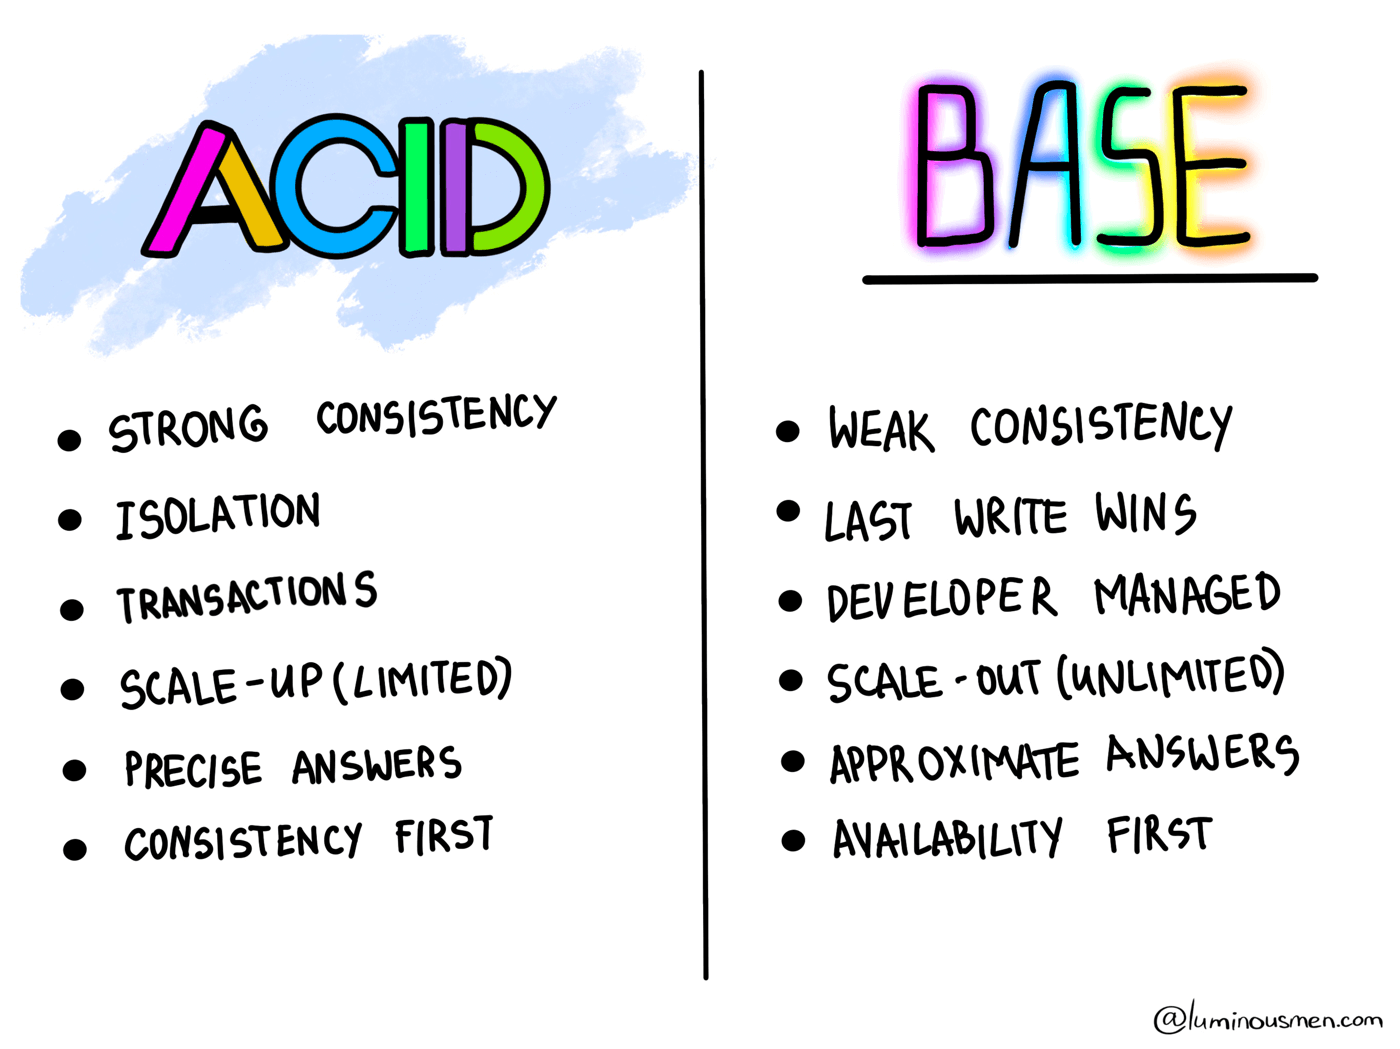 ACID
STRONG CONSISTENCY
ISOLATION
TRANSACTIONS
SCALE-UP (LIMITED)
PRECISE ANSWERS
CONSISTENCY FIRST
BASE
WEAK CONSISTENCY
LAST WRITE WINS
DEVELOPER MANAGED
SCALE-OUT (UNLIMITED)
APPROXIMATE ANSWERS
AVAILABILITY FIRST
@luminousmen.com